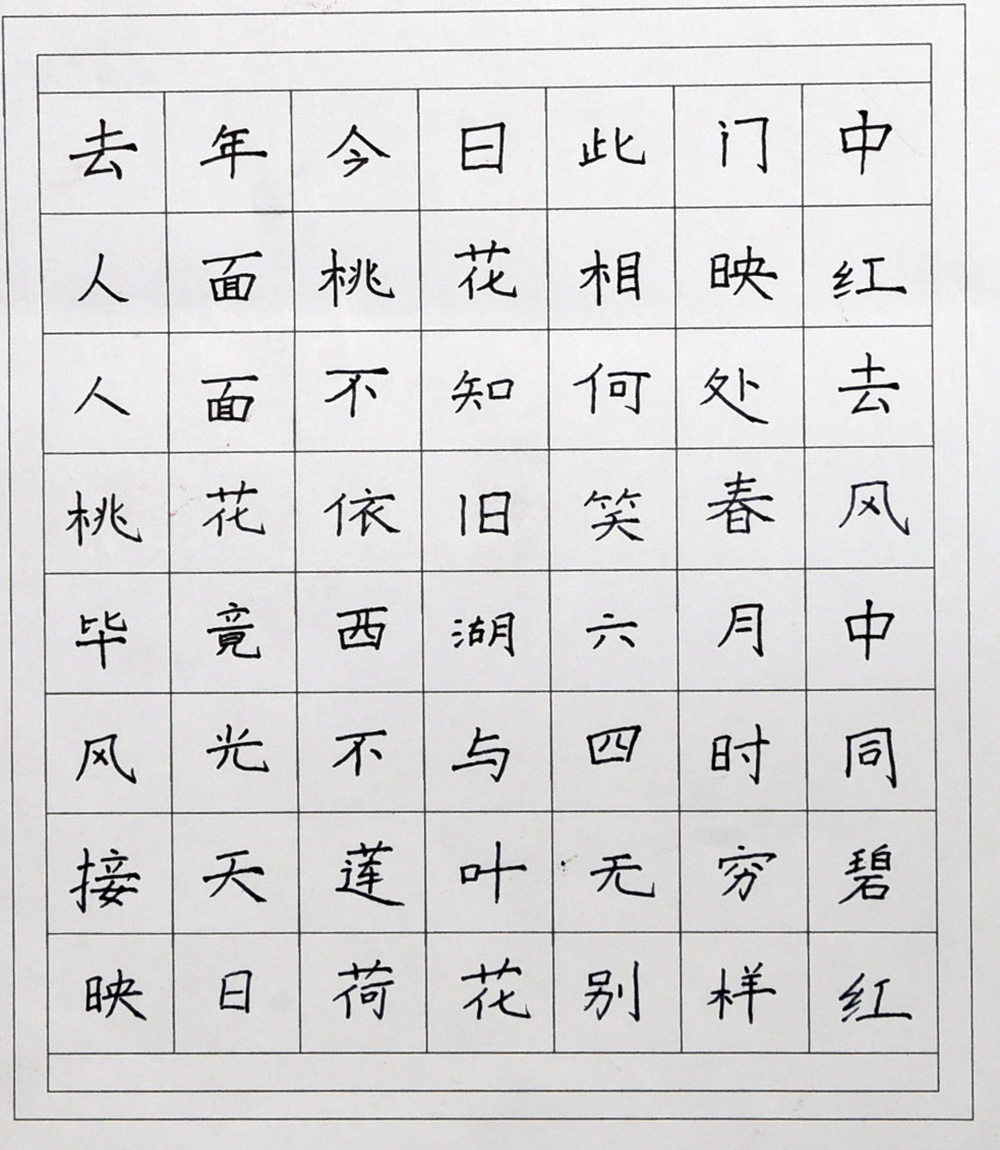 去年今日此门中
人面桃花相映红
人面不知何处去
桃花依旧笑春风
毕竟西湖六月中
风光不与四时同
接天莲叶无穷碧
映日荷花别样红